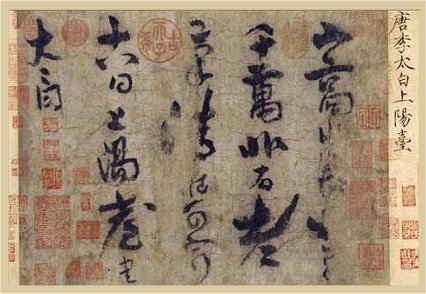 唐李太白上陽臺
山高水長物象
千萬非有老
筆清壯窮
十八日上陽臺書
太白